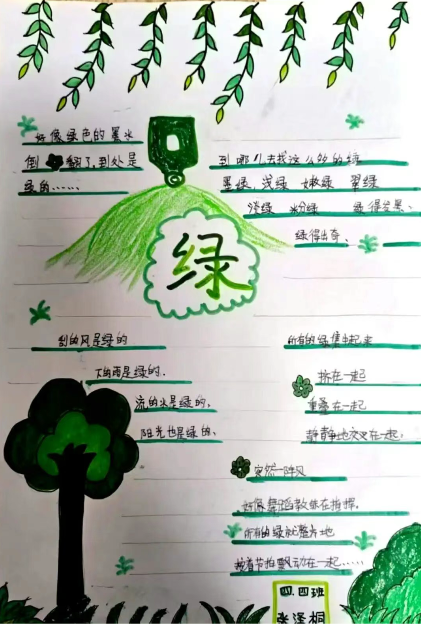 好像绿色的墨水
倒翻了,到处是
绿的……
到哪儿去找这么多的绿
墨绿、浅绿 嫩绿 翠绿
淡绿 粉绿 绿得发黑、
绿得出奇、
绿
刮的风是绿的
下的雨是绿的.
流的水是绿的、
阳光也是绿的、
所有的绿集中起来
挤在一起
重叠在一起
静静地交叉在一起.
突然一阵风
好像舞蹈教练在指挥,
所有的绿就整齐地
按着节拍飘动在一起……
四.四班
张泽桐